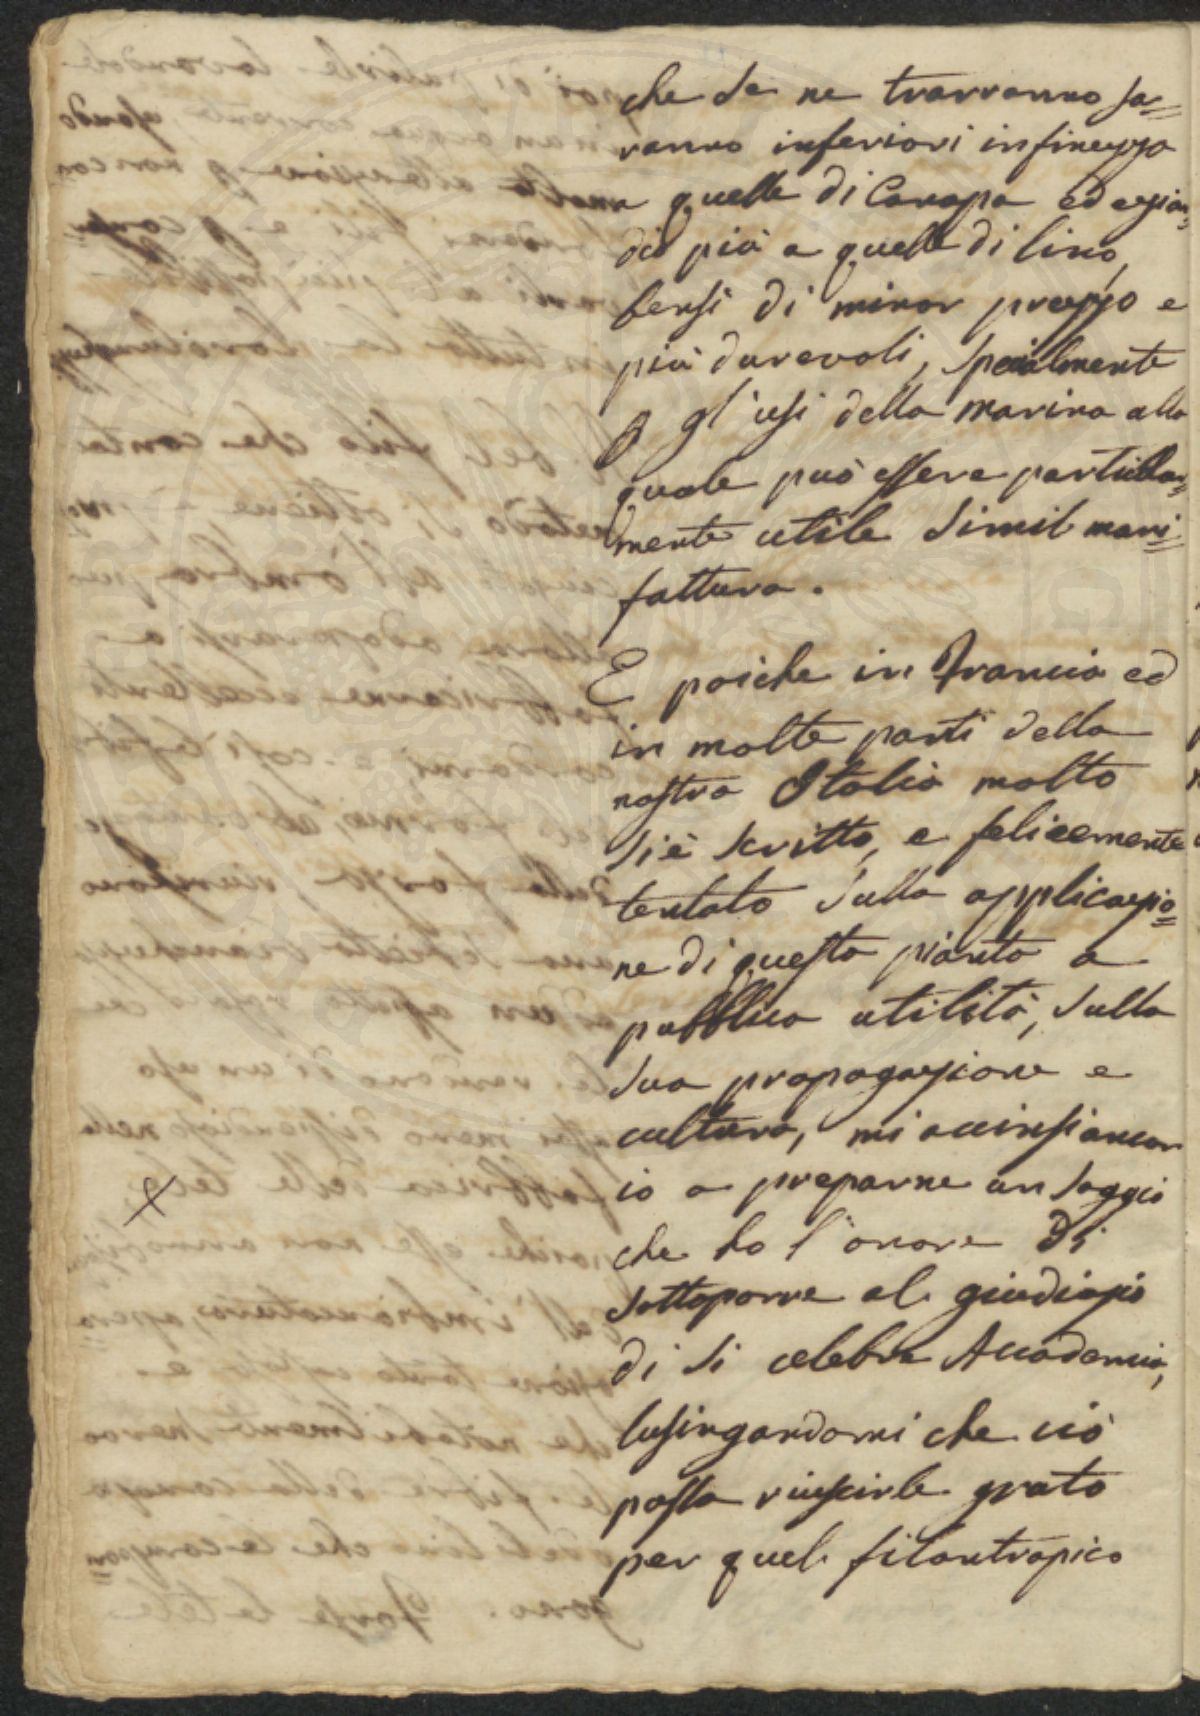 che se ne trarranno sa=
ranno inferiori in finezza
a quelle di Canapa ed ezian=
dio più a quelle di lino,
bensì di minor prezzo e
più durevoli, specialmente
p gl'usi della marina alla
quale può essere particolar=
mente utile simil mani=
fattura.
E poiche in Francia ed
in molte parti della
nostra Italia molto
si è scritto, e felicemente
tentato sulla applicazio=
ne di questa pianta a
pubblica utilità, sulla
sua propagazione e
cultura, mi accinsi ancor
io a preparne un saggio
che ho l'onore di
sottoporre al giudizio
di sì celebre Accademia,
lusingandomi che ciò
possa riuscirle grato
per quel filantropico